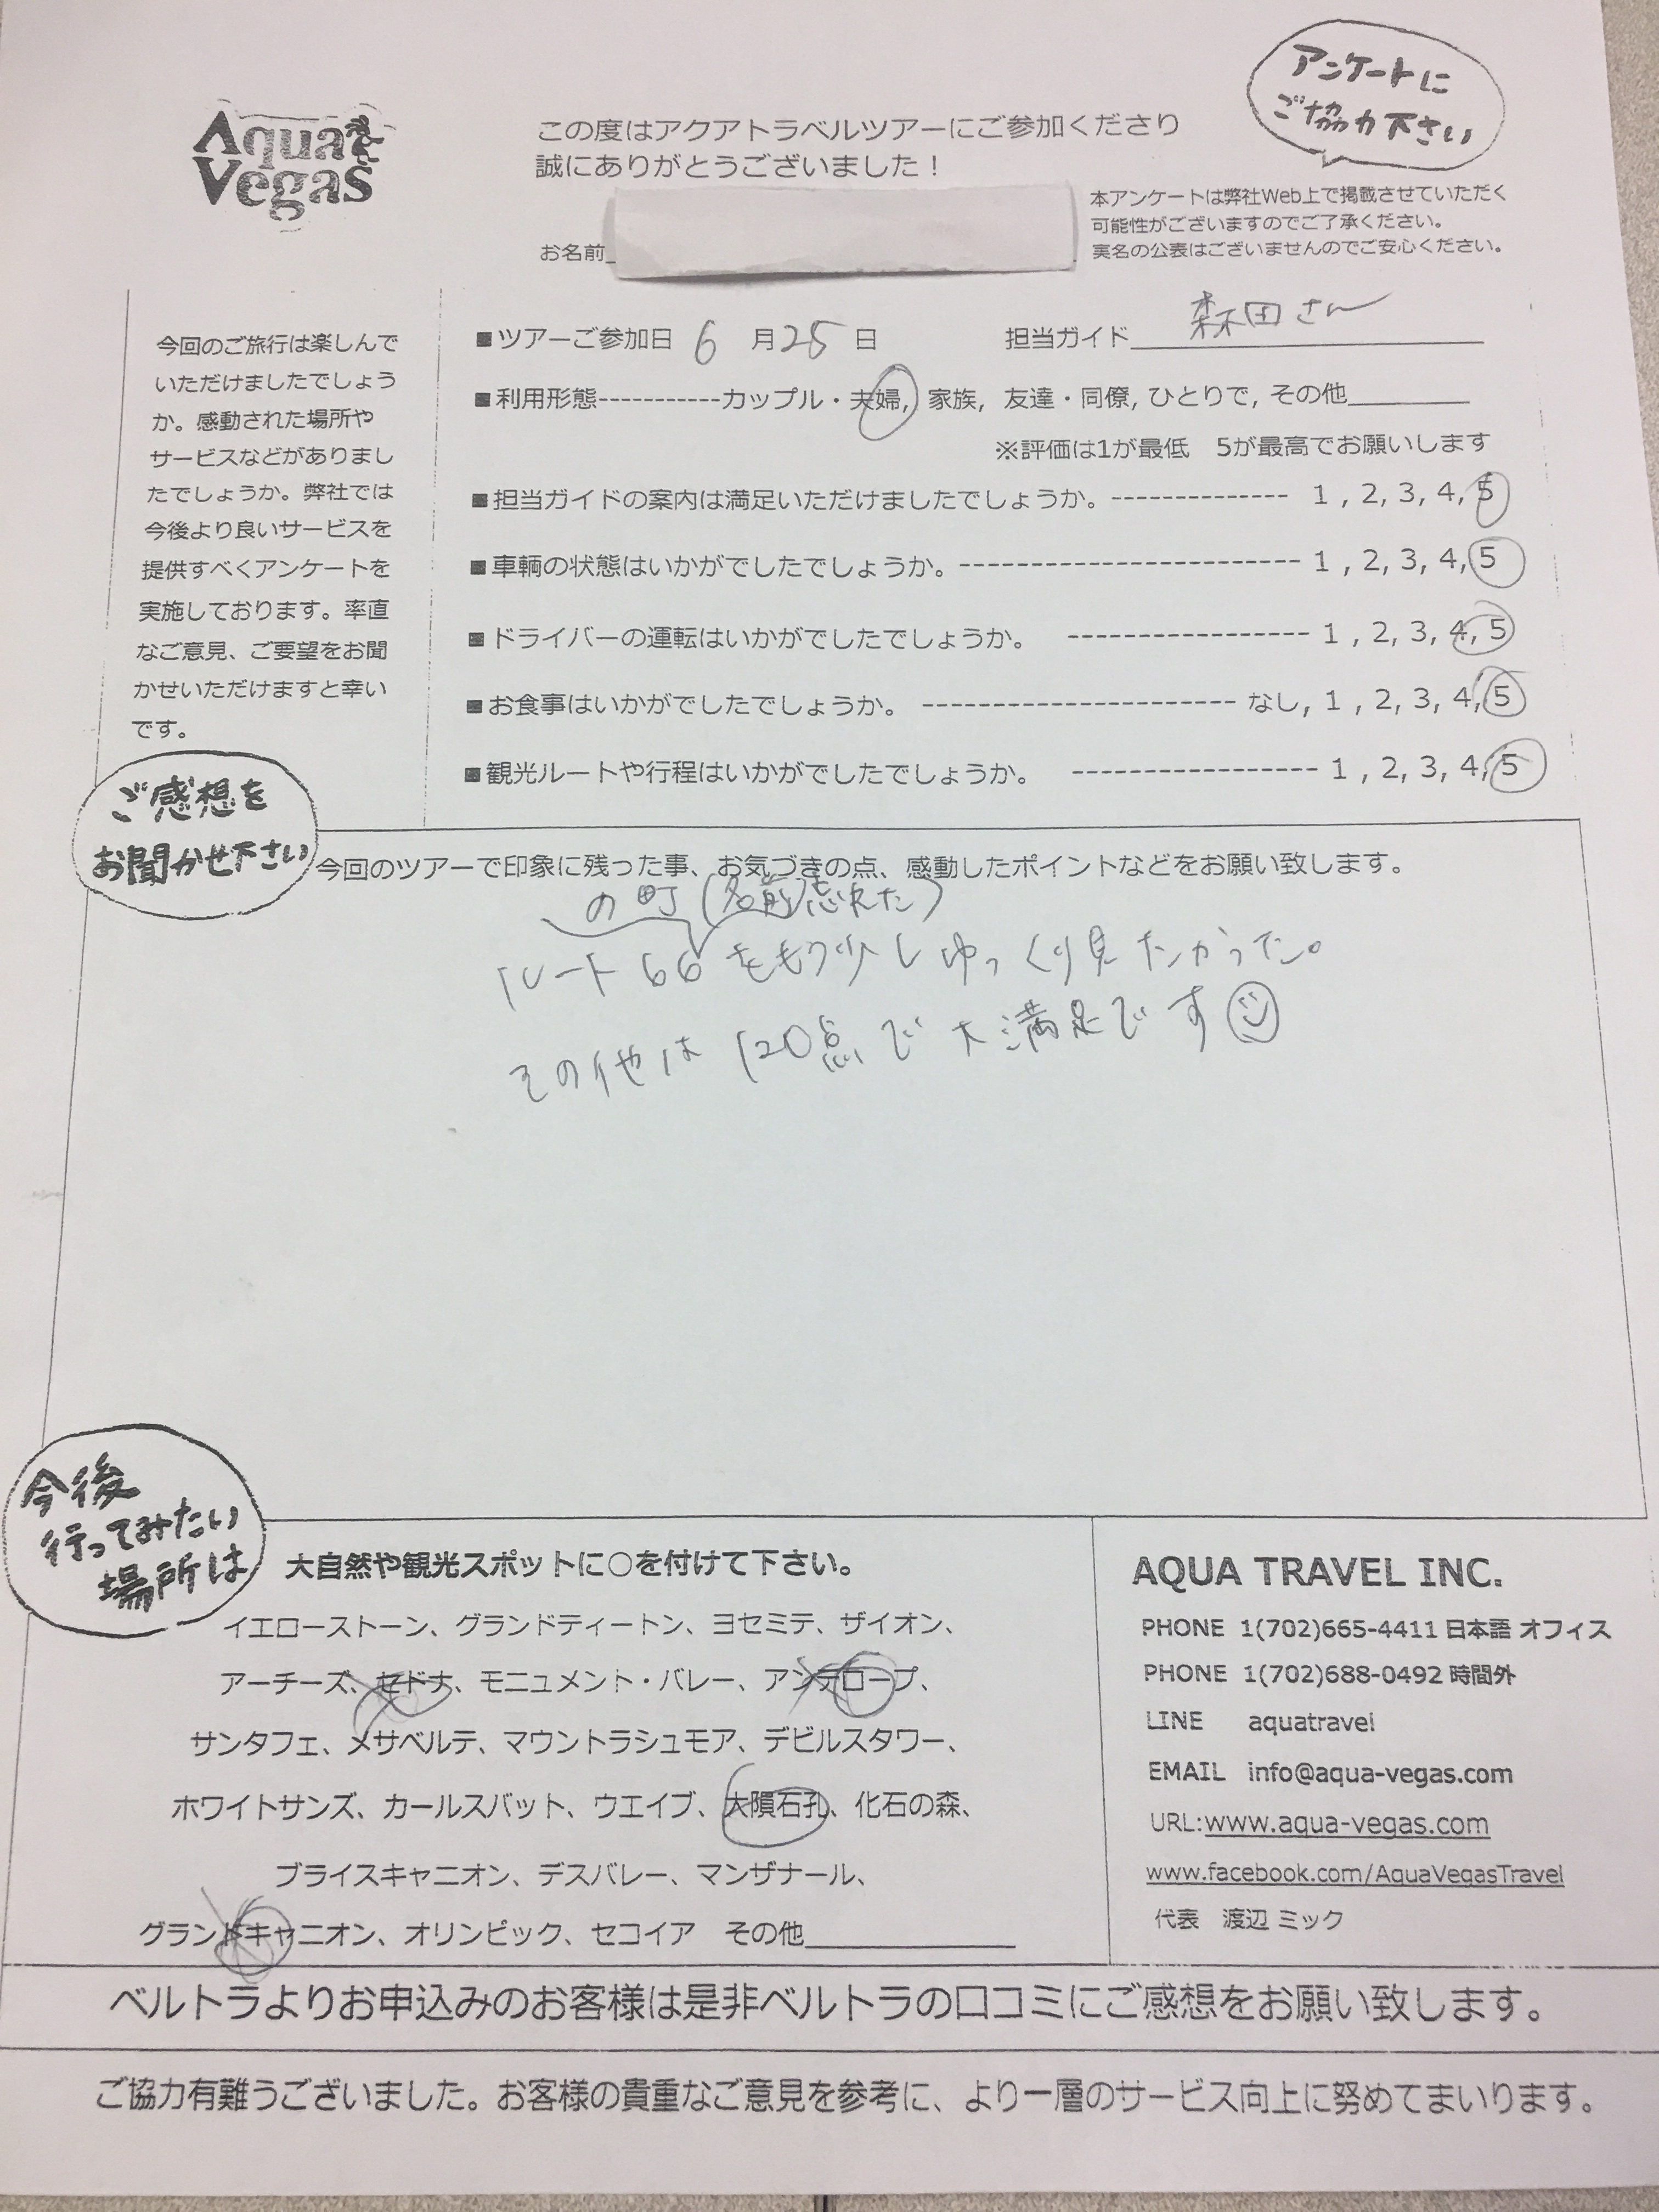 Aqua
Vegas
この度はアクアトラベルツアーにご参加くださり
誠にありがとうございました！
アンケートに
ご協力下さい
本アンケートは弊社Web上で掲載させていただく
可能性がございますのでご了承ください。
実名の公表はございませんのでご安心ください。
お名前
今回のご旅行は楽しんで
いただけましたでしょう
か。感動された場所や
サービスなどがありまし
たでしょうか。弊社では
今後より良いサービスを
提供すべくアンケートを
実施しております。率直
なご意見、ご要望をお聞
かせいただけますと幸い
です。
■ツアーご参加日 6 月 25 日 担当ガイド 森田さん
■利用形態-----------カップル・夫婦, 家族, 友達・同僚, ひとりで, その他________
※評価は1が最低 5が最高でお願いします
■担当ガイドの案内は満足いただけましたでしょうか。-------------- 1 , 2, 3, 4, 5
■車輌の状態はいかがでしたでしょうか。--------------------------- 1 , 2, 3, 4, 5
■ドライバーの運転はいかがでしたでしょうか。 ------------------- 1 , 2, 3, 4, 5
■お食事はいかがでしたでしょうか。 ------------------------- なし, 1 , 2, 3, 4, 5
■観光ルートや行程はいかがでしたでしょうか。 ------------------- 1 , 2, 3, 4, 5
ご感想を
お聞かせ下さい
今回のツアーで印象に残った事、お気づきの点、感動したポイントなどをお願い致します。
の町（名前忘れた）
ルート66をもう少しゆっくり見たかった。
その他は120点で大満足です
今後
行ってみたい
場所は
大自然や観光スポットに○を付けて下さい。
イエローストーン、グランドティートン、ヨセミテ、ザイオン、
アーチーズ、セドナ、モニュメント・バレー、アンテロープ、
サンタフェ、メサベルテ、マウントラシュモア、デビルスタワー、
ホワイトサンズ、カールスバット、ウエイブ、大隕石孔、化石の森、
ブライスキャニオン、デスバレー、マンザナール、
グランドキャニオン、オリンピック、セコイア その他______________
AQUA TRAVEL INC.
PHONE 1(702)665-4411 日本語 オフィス
PHONE 1(702)688-0492 時間外
LINE aquatravel
EMAIL info@aqua-vegas.com
URL:www.aqua-vegas.com
www.facebook.com/AquaVegasTravel
代表 渡辺 ミック
ベルトラよりお申込みのお客様は是非ベルトラの口コミにご感想をお願い致します。
ご協力有難うございました。お客様の貴重なご意見を参考に、より一層のサービス向上に努めてまいります。